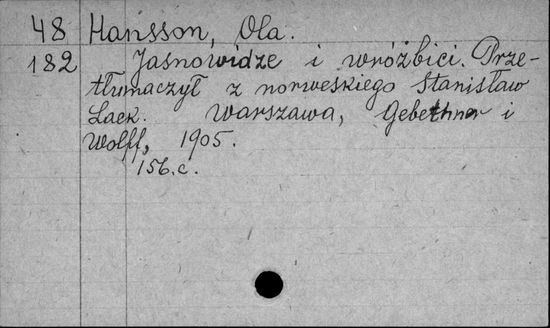 48 Hansson, Ola.
182 Jasnowidze i wróżbici. Prze-
tłumaczył z norweskiego Stanisław
Lack. Warszawa, Gebethner i
Wolff, 1905.
156.c.